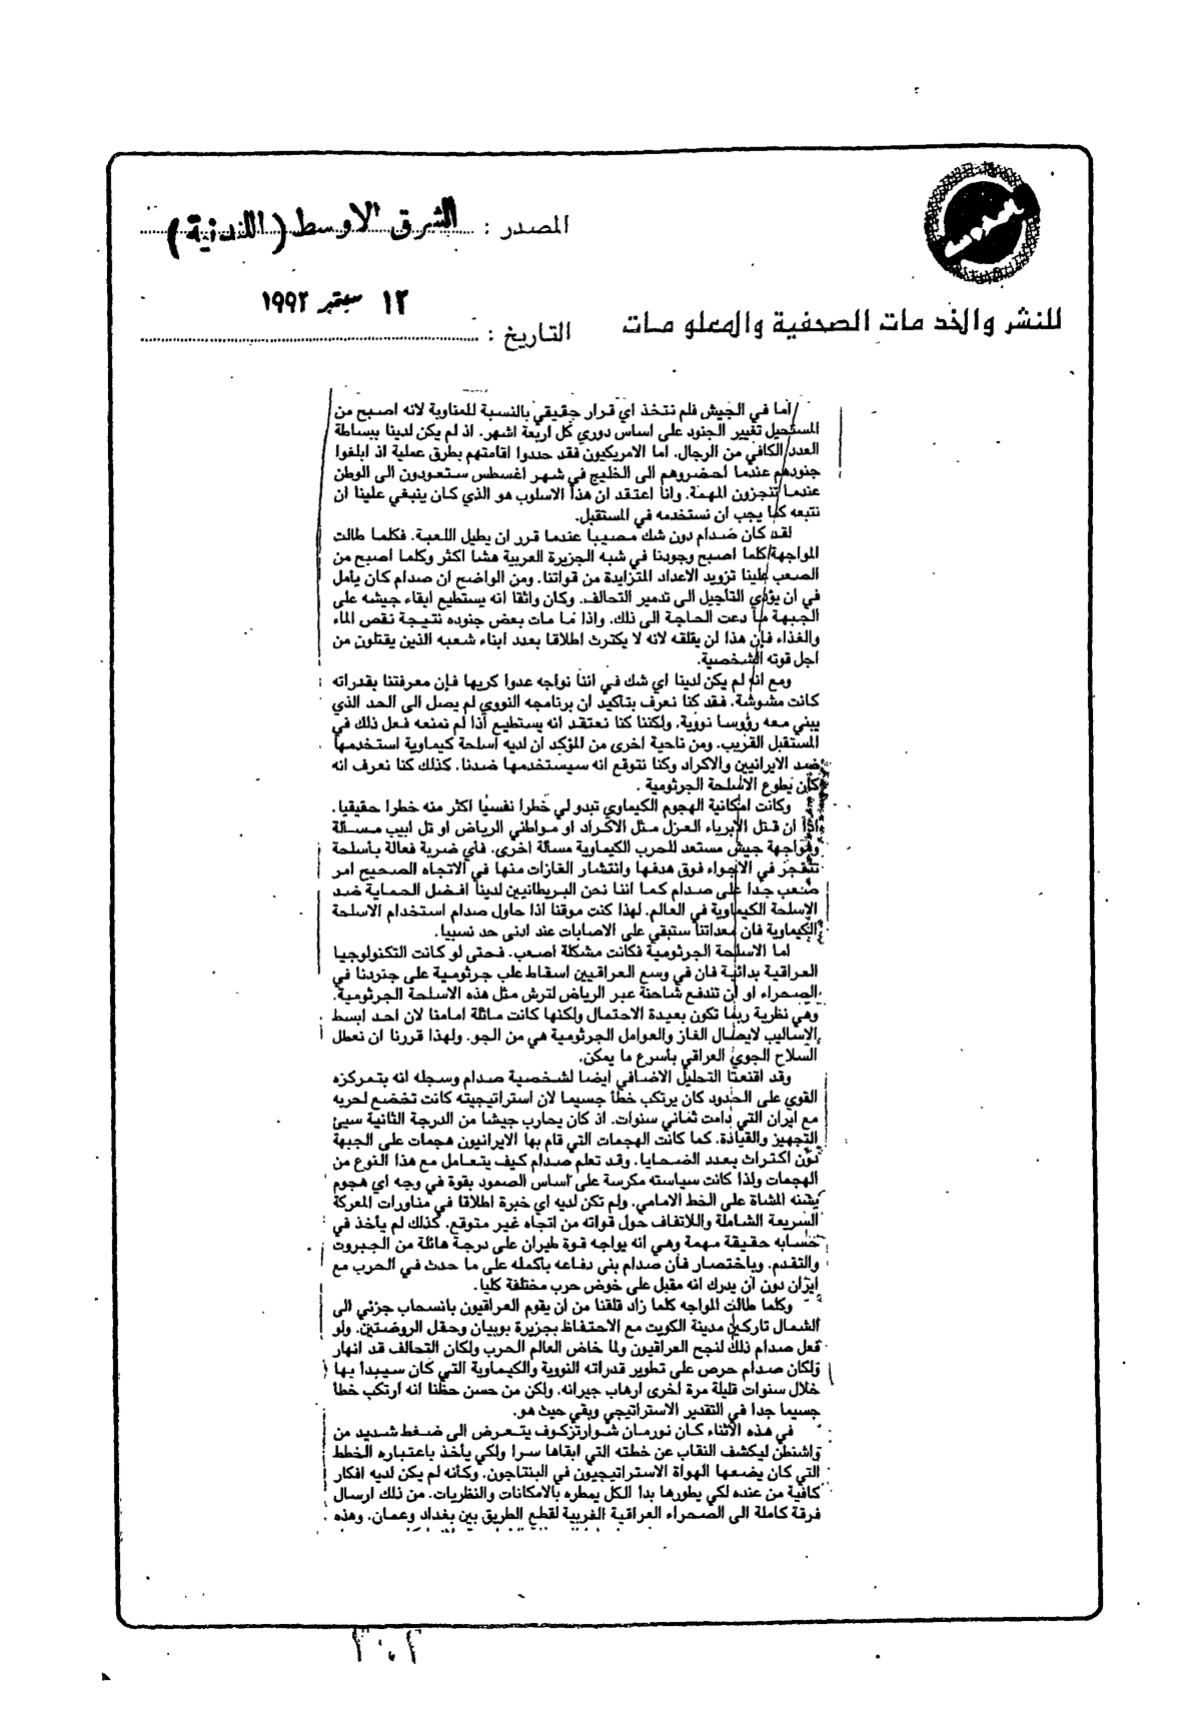 المصدر : الشرق الاوسط (اللندنية)
١٢ سبتمبر ١٩٩٢
للنشر والخدمات الصحفية والمعلومات التاريخ :
اما في الجيش فلم نتخذ اي قرار حقيقي بالنسبة للمناوبة لانه اصبح من
المستحيل تغيير الجنود على اساس دوري كل اربعة اشهر. اذ لم يكن لدينا ببساطة
العدد الكافي من الرجال. اما الامريكيون فقد حددوا اقامتهم بطرق عملية اذ ابلغوا
جنودهم عندما احضروهم الى الخليج في شهر اغسطس ستعودون الى الوطن
عندما تنجزون المهمة. وانا اعتقد ان هذا الاسلوب هو الذي كان ينبغي علينا ان
نتبعه كما يجب ان نستخدمه في المستقبل.
لقد كان صدام دون شك مصيبا عندما قرر ان يطيل اللعبة. فكلما طالت
المواجهة كلما اصبح وجودنا في شبه الجزيرة العربية هشا اكثر وكلما اصبح من
الصعب علينا تزويد الاعداد المتزايدة من قواتنا. ومن الواضح ان صدام كان يأمل
في ان يؤدي التأجيل الى تدمير التحالف. وكان واثقا انه يستطيع ابقاء جيشه على
الجبهة ما دعت الحاجة الى ذلك. واذا ما مات بعض جنوده نتيجة نقص الماء
والغذاء فإن هذا لن يقلقه لانه لا يكترث اطلاقا بعدد ابناء شعبه الذين يقتلون من
اجل قوته الشخصية.
ومع انه لم يكن لدينا اي شك في اننا نواجه عدوا كريها فإن معرفتنا بقدراته
كانت مشوشة. فقد كنا نعرف بتأكيد ان برنامجه النووي لم يصل الى الحد الذي
يبني معه رؤوسا نووية. ولكننا كنا نعتقد انه يستطيع اذا لم نمنعه فعل ذلك في
المستقبل القريب. ومن ناحية اخرى من المؤكد ان لديه اسلحة كيماوية استخدمها
ضد الايرانيين والاكراد وكنا نتوقع انه سيستخدمها ضدنا. كذلك كنا نعرف انه
كان يطوع الاسلحة الجرثومية .
وكانت امكانية الهجوم الكيماوي تبدو لي خطرا نفسيا اكثر منه خطرا حقيقيا.
اذا ان قتل الابرياء العزل مثل الاكراد او مواطني الرياض او تل ابيب مسألة
ومواجهة جيش مستعد للحرب الكيماوية مسألة اخرى. فأي ضربة فعالة بأسلحة
تتفجر في الاجواء فوق هدفها وانتشار الغازات منها في الاتجاه الصحيح امر
صعب جدا على صدام كما اننا نحن البريطانيين لدينا افضل الحماية ضد
الاسلحة الكيماوية في العالم. لهذا كنت موقنا اذا حاول صدام استخدام الاسلحة
الكيماوية فان معداتنا ستبقي على الاصابات عند ادنى حد نسبيا.
اما الاسلحة الجرثومية فكانت مشكلة اصعب. فحتى لو كانت التكنولوجيا
العراقية بدائية فان في وسع العراقيين اسقاط علب جرثومية على جنودنا في
الصحراء او ان تندفع شاحنة عبر الرياض لترش مثل هذه الاسلحة الجرثومية.
وهي نظرية ربما تكون بعيدة الاحتمال ولكنها كانت ماثلة امامنا لان احد ابسط
الاساليب لايصال الغاز والعوامل الجرثومية هي من الجو. ولهذا قررنا ان نعطل
السلاح الجوي العراقي بأسرع ما يمكن.
وقد اقنعنا التحليل الاضافي ايضا لشخصية صدام وسجله انه بتمركزه
القوي على الحدود كان يرتكب خطأ جسيما لان استراتيجيته كانت تخضع لحربه
مع ايران التي دامت ثماني سنوات. اذ كان يحارب جيشا من الدرجة الثانية سيئ
التجهيز والقيادة. كما كانت الهجمات التي قام بها الايرانيون هجمات على الجبهة
دون اكتراث بعدد الضحايا. وقد تعلم صدام كيف يتعامل مع هذا النوع من
الهجمات ولذا كانت سياسته مكرسة على اساس الصمود بقوة في وجه اي هجوم
يشنه المشاة على الخط الامامي. ولم تكن لديه اي خبرة اطلاقا في مناورات المعركة
السريعة الشاملة والالتفاف حول قواته من اتجاه غير متوقع. كذلك لم يأخذ في
حسابه حقيقة مهمة وهي انه يواجه قوة طيران على درجة هائلة من الجبروت
والتقدم. وباختصار فأن صدام بنى دفاعه بأكمله على ما حدث في الحرب مع
ايران دون ان يدرك انه مقبل على خوض حرب مختلفة كليا.
وكلما طالت المواجه كلما زاد قلقنا من ان يقوم العراقيون بانسحاب جزئي الى
الشمال تاركين مدينة الكويت مع الاحتفاظ بجزيرة بوبيان وحقل الروضتين. ولو
فعل صدام ذلك لنجح العراقيون ولما خاض العالم الحرب ولكان التحالف قد انهار
ولكان صدام حرص على تطوير قدراته النووية والكيماوية التي كان سيبدأ بها
خلال سنوات قليلة مرة اخرى ارهاب جيرانه. ولكن من حسن حظنا انه ارتكب خطأ
جسيما جدا في التقدير الاستراتيجي وبقي حيث هو.
في هذه الاثناء كان نورمان شوارتزكوف يتعرض الى ضغط شديد من
واشنطن ليكشف النقاب عن خطته التي ابقاها سرا ولكي يأخذ باعتباره الخطط
التي كان يضعها الهواة الاستراتيجيون في البنتاجون. وكأنه لم يكن لديه افكار
كافية من عنده لكي يطورها بدا الكل يمطره بالامكانات والنظريات. من ذلك ارسال
فرقة كاملة الى الصحراء العراقية الغربية لقطع الطريق بين بغداد وعمان. وهذه